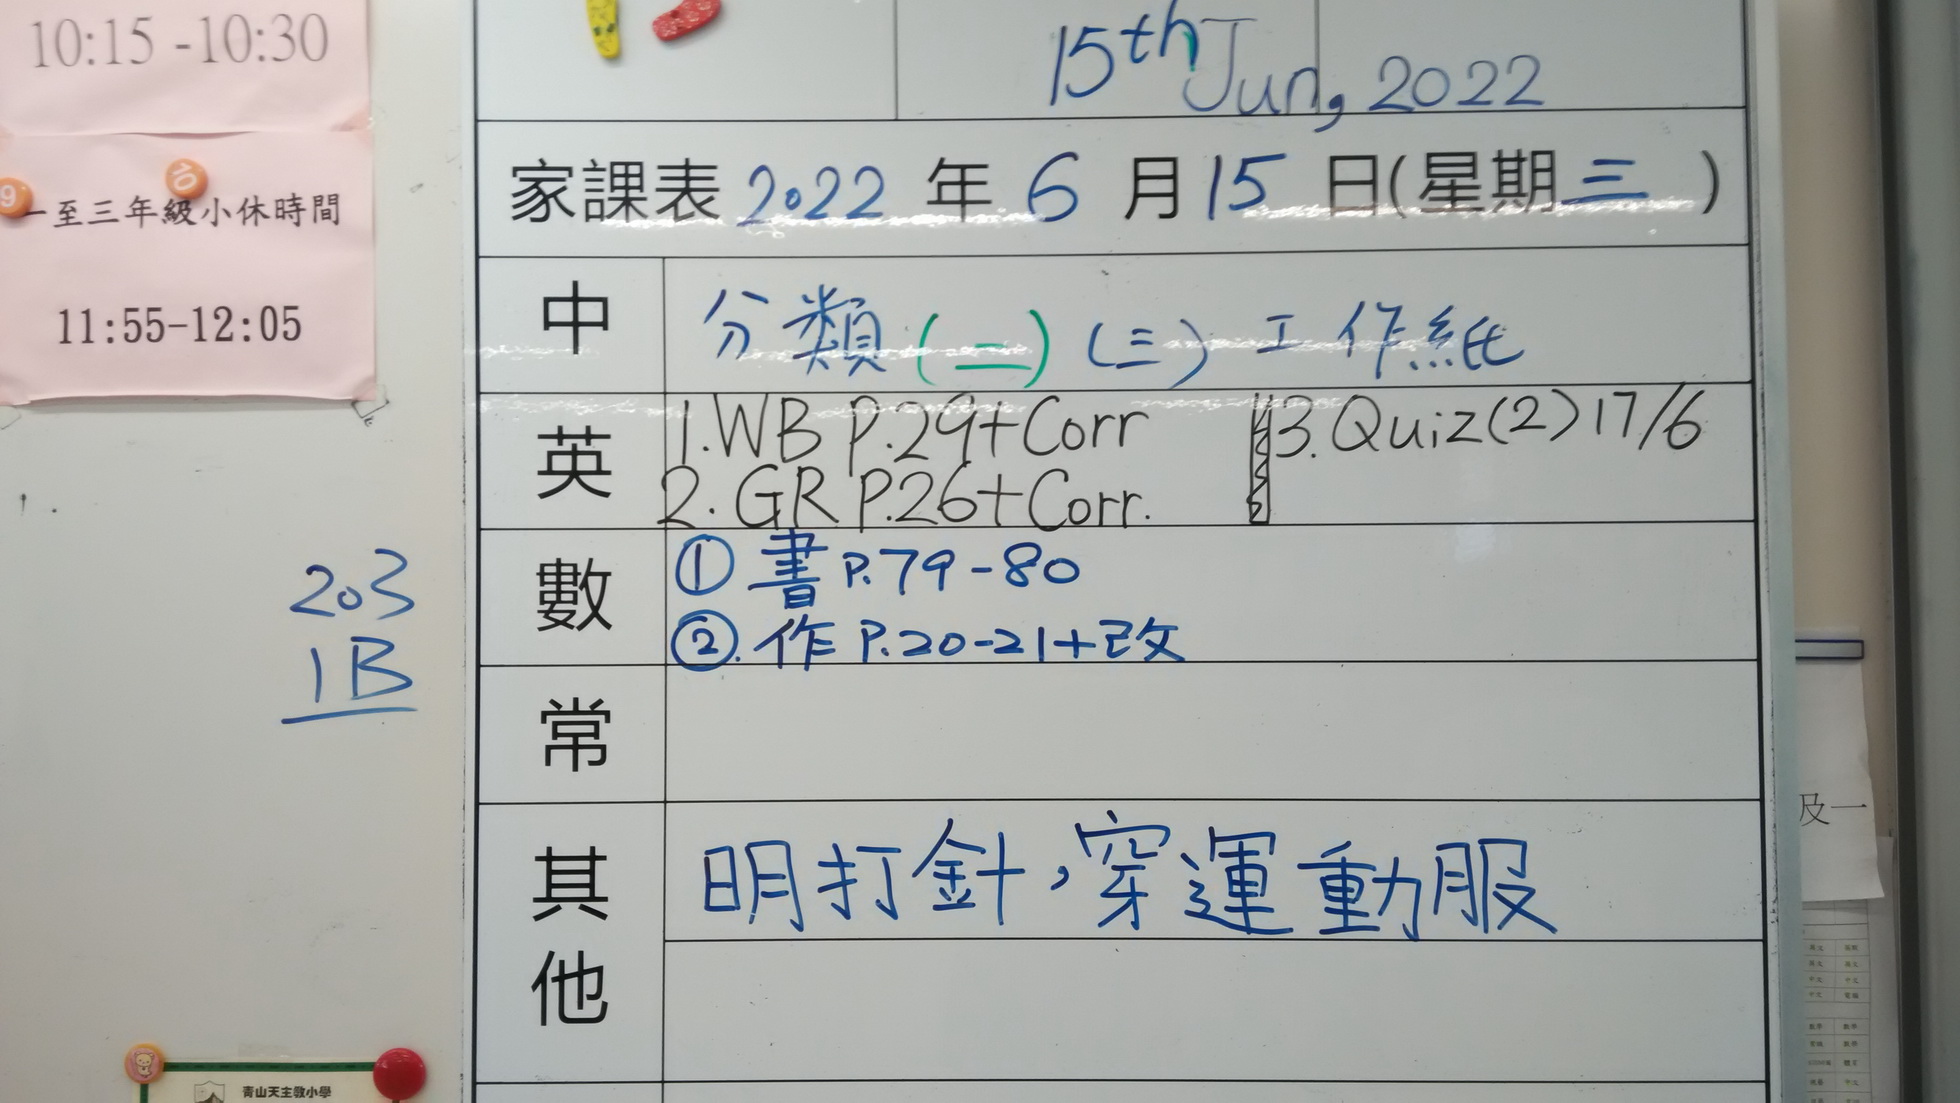 10:15 -10:30
一至三年級小休時間
11:55-12:05
203
1B
青山天主教小學
15th Jun, 2022
家課表 2022 年 6 月 15 日(星期三)
中 分類(二)(三)工作紙
英 1.WB P.29+Corr 3.Quiz(2)17/6
2. GR P.26+Corr.
數 ① 書 P.79-80
②. 作 P.20-21+改
常
其他 明打針，穿運動服
及一